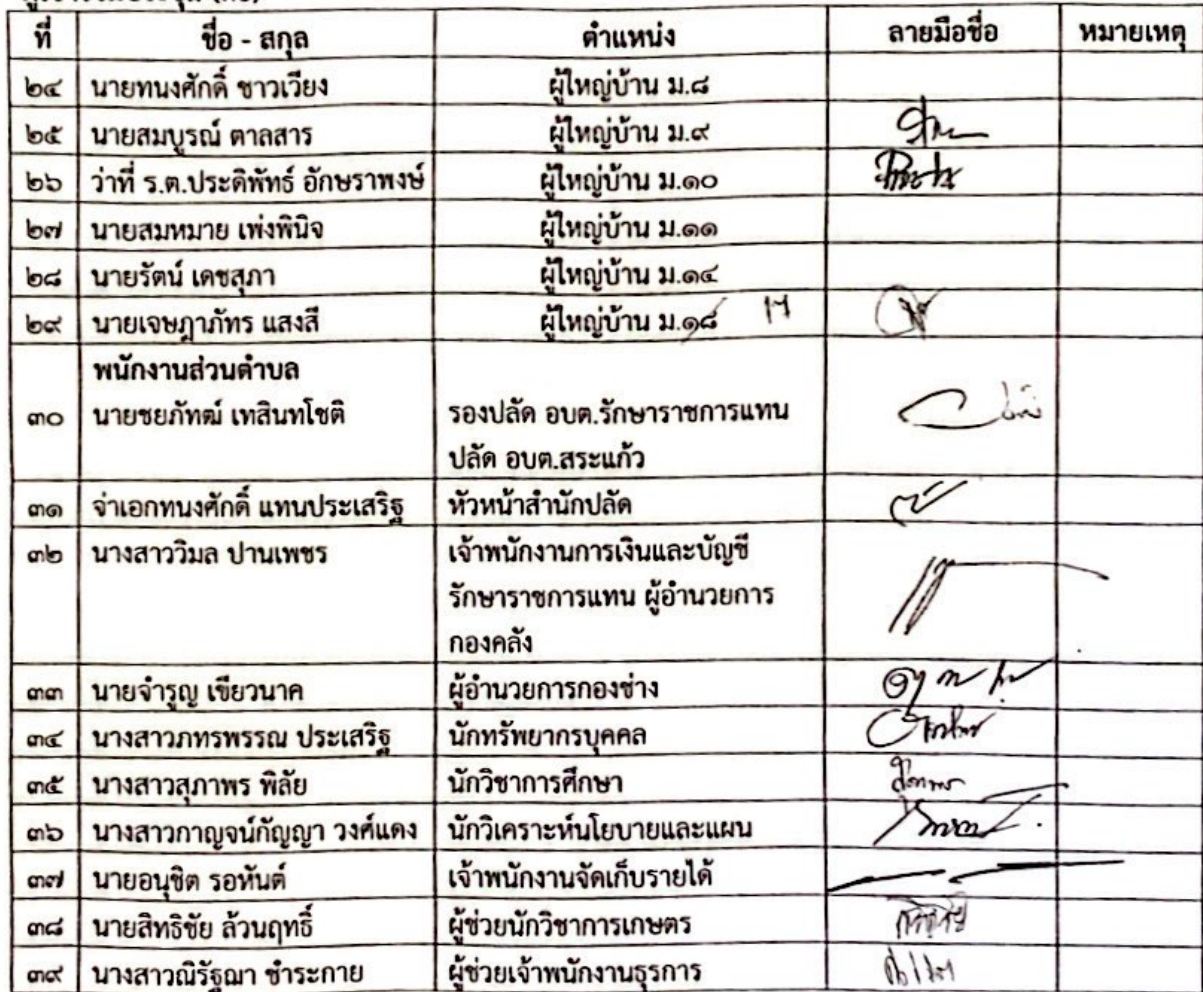 ที่ ชื่อ - สกุล ตำแหน่ง ลายมือชื่อ หมายเหตุ
๒๔ นายทนงศักดิ์ ชาวเวียง ผู้ใหญ่บ้าน ม.๘
๒๕ นายสมบูรณ์ ตาลสาร ผู้ใหญ่บ้าน ม.๙
๒๖ ว่าที่ ร.ต.ประดิพัทธ์ อักษราพงษ์ ผู้ใหญ่บ้าน ม.๑๐
๒๗ นายสมหมาย เพ่งพินิจ ผู้ใหญ่บ้าน ม.๑๑
๒๘ นายรัตน์ เดชสุภา ผู้ใหญ่บ้าน ม.๑๔
๒๙ นายเจษฎาภัทร แสงสี ผู้ใหญ่บ้าน ม.๑๘
พนักงานส่วนตำบล
๓๐ นายชยภัทฒ์ เทสินทโชติ รองปลัด อบต.รักษาราชการแทน
ปลัด อบต.สระแก้ว
๓๑ จ่าเอกทนงศักดิ์ แทนประเสริฐ หัวหน้าสำนักปลัด
๓๒ นางสาววิมล ปานเพชร เจ้าพนักงานการเงินและบัญชี
รักษาราชการแทน ผู้อำนวยการ
กองคลัง
๓๓ นายจำรูญ เขียวนาค ผู้อำนวยการกองช่าง
๓๔ นางสาวภทรพรรณ ประเสริฐ นักทรัพยากรบุคคล
๓๕ นางสาวสุภาพร พิลัย นักวิชาการศึกษา
๓๖ นางสาวกาญจน์กัญญา วงศ์แดง นักวิเคราะห์นโยบายและแผน
๓๗ นายอนุชิต รอหันต์ เจ้าพนักงานจัดเก็บรายได้
๓๘ นายสิทธิชัย ล้วนฤทธิ์ ผู้ช่วยนักวิชาการเกษตร
๓๙ นางสาวณิรัฐฌา ชำระกาย ผู้ช่วยเจ้าพนักงานธุรการ